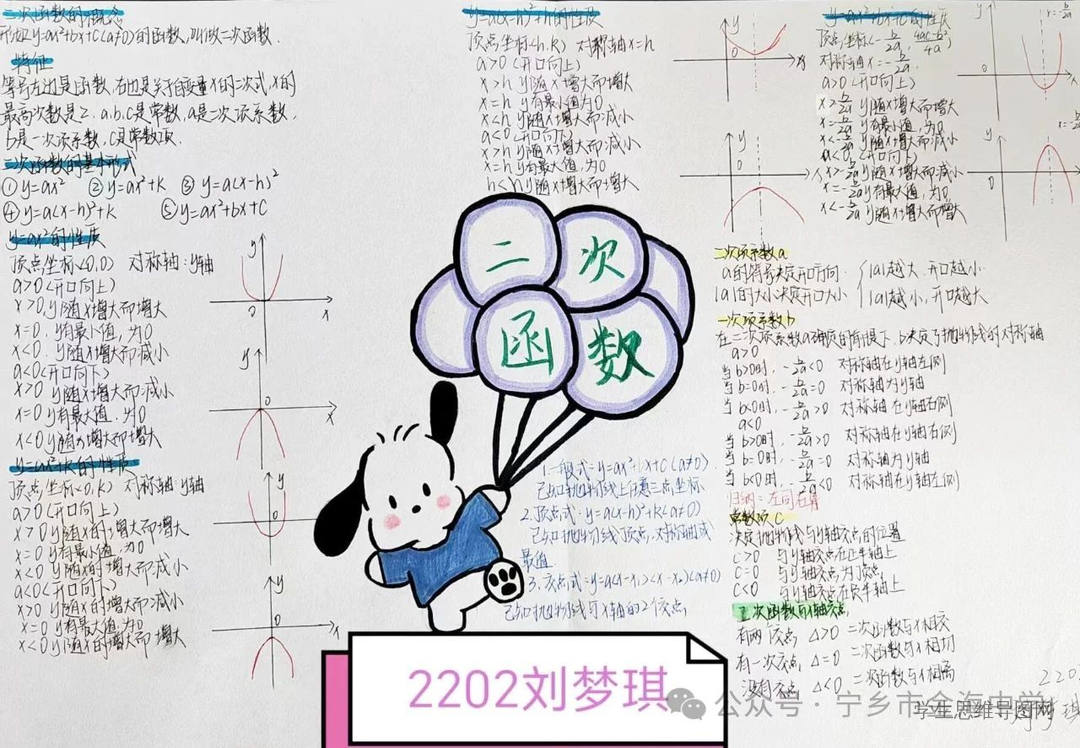 二次函数的概念
形如y=ax²+bx+c(a≠0)的函数,叫做二次函数.
特征
等号左边是函数,右边是关于自变量x的二次式,x的
最高次数是2. a.b.c是常数,a是二次项系数,
b是一次项系数,c是常数项.
二次函数的基本形式
①y=ax² ②y=ax²+k ③y=a(x-h)²
④y=a(x-h)²+k ⑤y=ax²+bx+c
y=ax²的性质
顶点坐标(0,0) 对称轴:y轴
a>0(开口向上)
x>0,y随x增大而增大
x=0.y有最小值,为0
x<0.y随x增大而减小
a<0(开口向下)
x>0 y随x增大而减小
x=0 y有最大值.为0
x<0 y随x增大而增大
y=ax²+k的性质
顶点坐标(0,k) 对称轴 y轴
a>0(开口向上)
x>0 y随x的增大而增大
x=0 y有最小值,为0
x<0 y随x的增大而减小
a<0(开口向下)
x>0 y随x的增大而减小
x=0 y有最大值.为0
x<0 y随x的增大而增大
y=a(x-h)²+k的性质
顶点坐标(h,k) 对称轴x=h
a>0(开口向上)
x>h y随x增大而增大
x=h y有最小值为0
x<h y随x增大而减小
a<0(开口向下)
x>h y随x增大而减小
x=h y有最大值,为0
h<h y随x增大而增大
y=ax²+bx+c的性质
顶点坐标(-b/2a, 4ac-b²/4a)
对称轴x=-b/2a
a>0(开口向上)
x>-b/2a y随x增大而增大
x=-b/2a y有最小值,为0
x<-b/2a y随x增大而减小
a<0(开口向下)
x>-b/2a y随x增大而减小
x=-b/2a y有最大值,为0
x<-b/2a y随x增大而增大
二次
函数
1.一般式:y=ax²+bx+c(a≠0)
已知抛物线上任意三点坐标
2.顶点式:y=a(x-h)²+k(a≠0)
已知抛物线顶点,对称轴或
最值
3.交点式:y=a(x-x₁)(x-x₂)(a≠0)
已知抛物线与x轴的2个交点
二次项系数a
a的符号决定开口方向
|a|的大小决定开口大小
|a|越大,开口越小
|a|越小,开口越大
一次项系数b
在二次项系数a确定的前提下,b决定了抛物线的对称轴
a>0
当b>0时,-b/2a<0 对称轴在y轴左侧
当b=0时,-b/2a=0 对称轴为y轴
当b<0时,-b/2a>0 对称轴在y轴右侧
a<0
当b>0时,-b/2a>0 对称轴在y轴右侧
当b=0时,-b/2a=0 对称轴为y轴
当b<0时,-b/2a<0 对称轴在y轴左侧
归纳:左同右异
常数项c
决定抛物线与y轴交点的位置
c>0 与y轴交点在正半轴上
c=0 与y轴交点为原点
c<0 与y轴交点在负半轴上
二次函数与x轴交点
有两个交点,△>0 二次函数与x相交
有一次交点,△=0 二次函数与x相切
没有交点 △<0 二次函数与x相离
2202刘梦琪
公众号·宁乡市金海中学
学生思维导图网